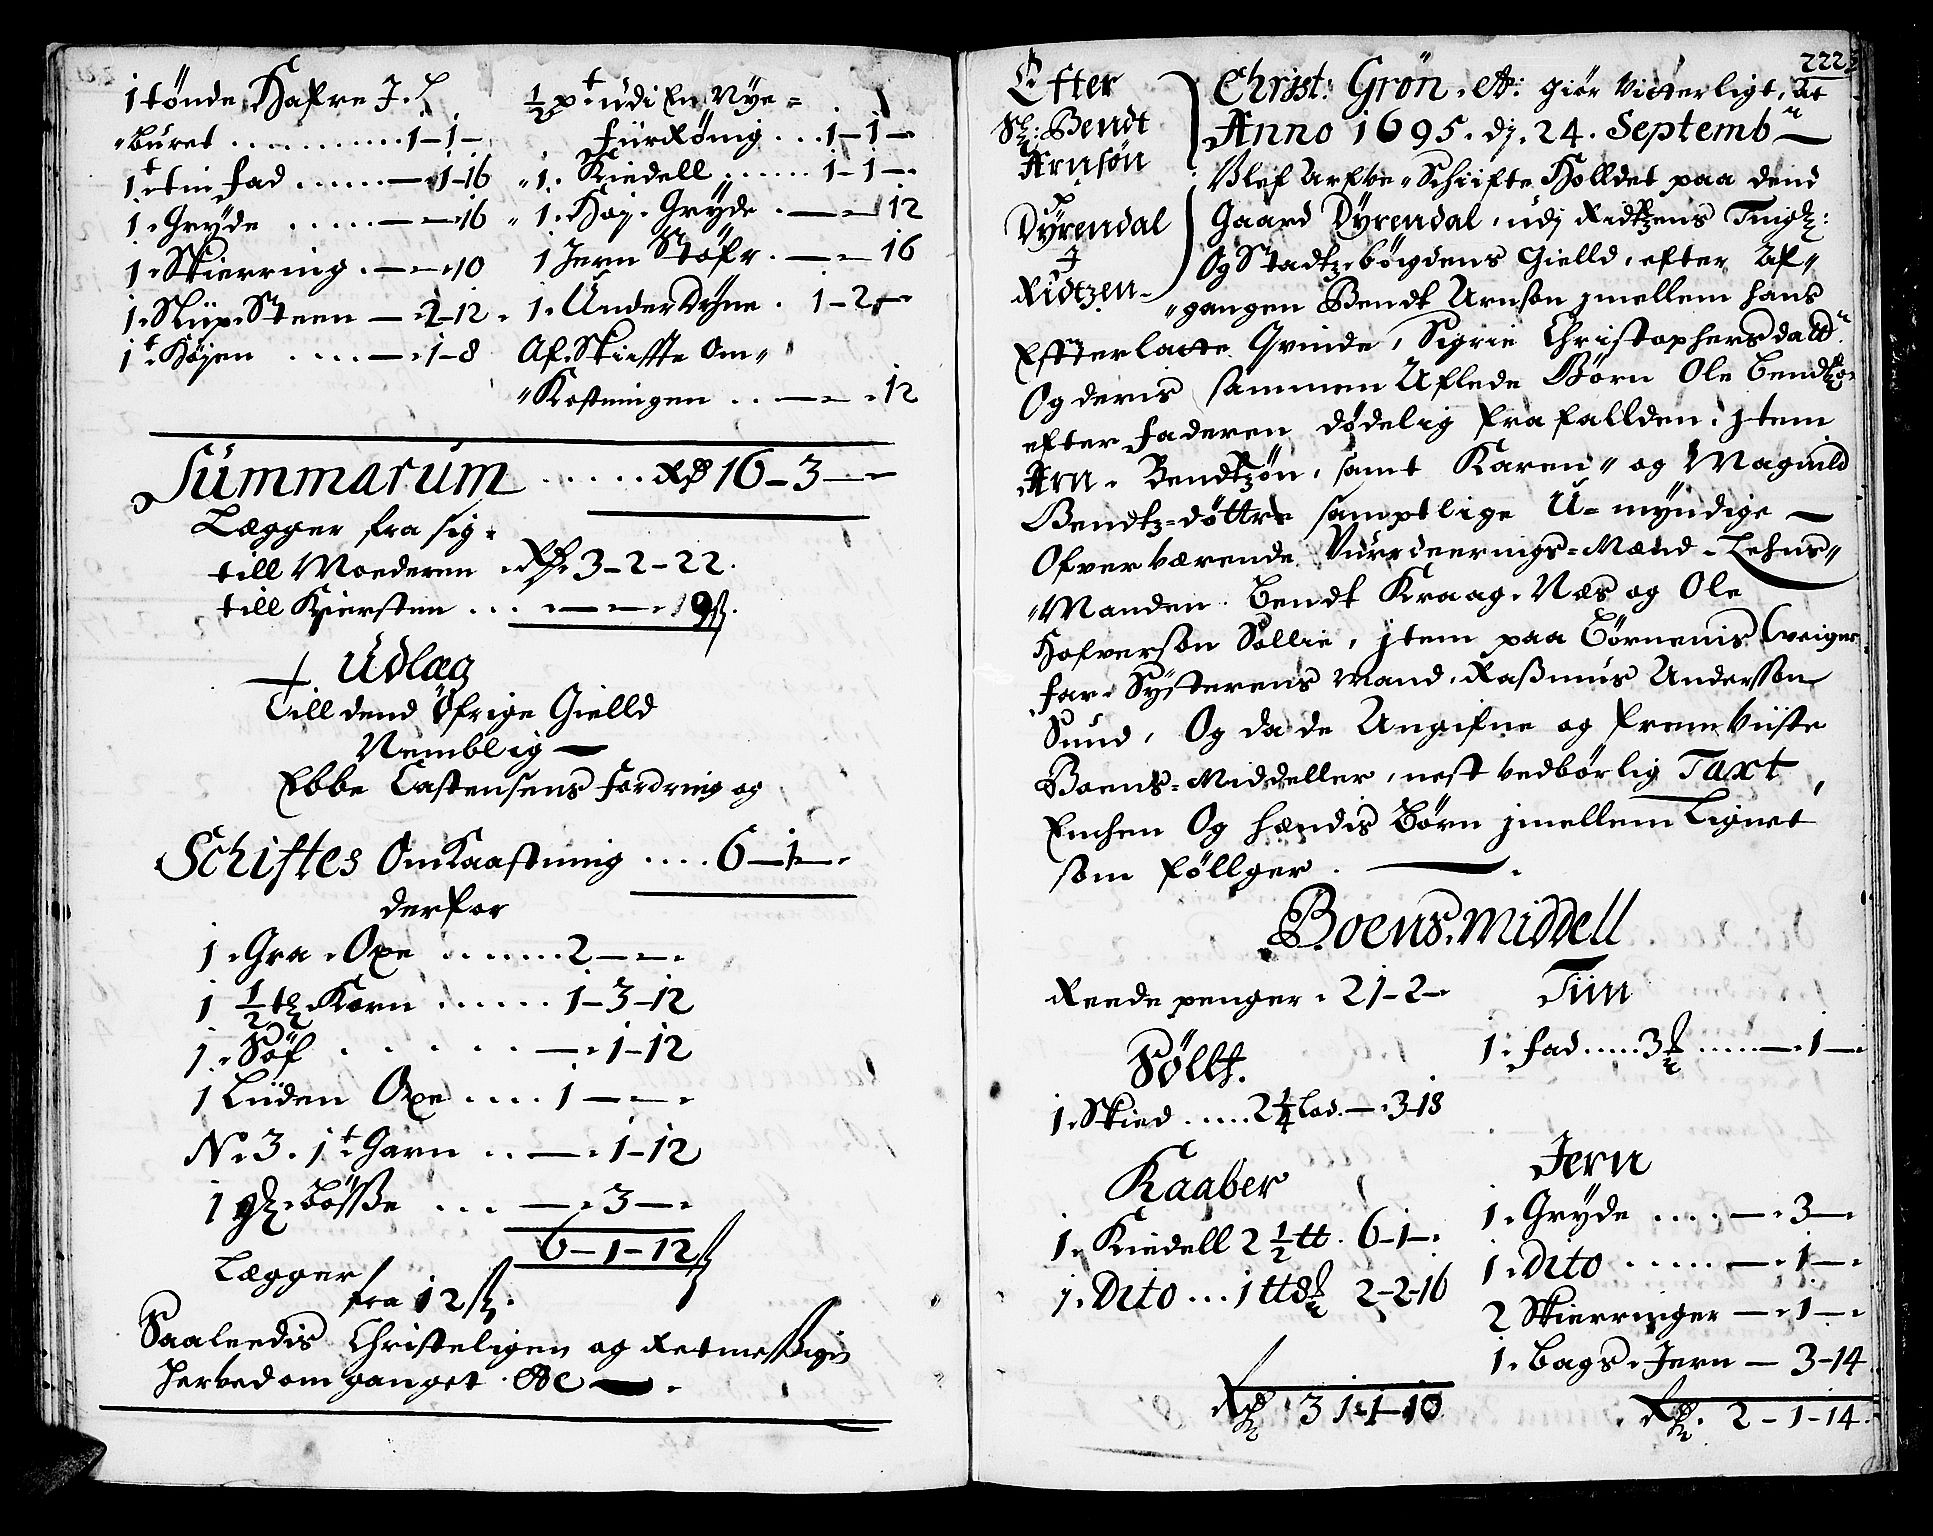 1 tønde Hafre J. S
"Buret ............ 1-1-
1t tin fad ...... — 1-16
1. Gryde ..... — — 16
1. Skierring . — — 10
1. Sliip. Steen — 2-12 .
1t Høyen .... — 1-8
½ p.t udi En Nye =
fürrønig ... 1-1-
1. Kiedell ...... 1-1-
1. Hoj. Gryde . — — 12
1 Jern Støfr . — — 16
1. Under Dyne . 1-2-
Af. Skieffte Om"
"Kostningen .. — — 12
Summarum ...... Rd 16-3-
Lægger fra sig.
till Moederen . Rd. 3-2-22.
till Kiersten ... — — 19ß.
Udlæg
Till dend Øfrige Gielld
Nemblig —
Ebbe Castensens fordring og
Schiftes Omkaastning .... 6-1-
derfor
1. Graa Oxe ....... 2 — —
1 ½ tz Korn ...... 1-3-12
1. Søf . . . . . — 1-12
1 Liiden Oxe .... 1 — —
N. 3. 1t Garn .. — 1-12
1 gl. Bøsße ... — 3 —
6-1-12 ß
Lægger
fra 12 ß.
Saaleedis Christeligen og Retmessigen
herved omganget. Etc — .
222
Efter
Sl: Bendt
Arnsøn
Dyrendal
J
Ridtzen
Christ: Grøn. etc: giør Vitterligt, At
Anno 1695. dj. 24. Septembr —
Blef Arfve Schiifte Holldet paa dend
Gaard Dyrendal, udj Ridtzens Tingl:
Og Stadtzbøigdens Gielld, efter Af"
"gangen Bendt Arnsøn jmellem hans
Effterlatte Qvinde, Sigrie Christophersdattr
Og deris sammen Aflede Børn Ole Bendtzøn
efter faderen dødelig frafallden. jtem
Arn. Bendtzøn, samt Karen" og Magnild
Bendtz=døttre samptlige U=myndige —
Ofververende Vurdeerings=Mænd. Lehns"
"Manden. Bendt Kraag. Næs og Ole
Hafversøn Sollie, jtem paa Børnenis Veigner
far. Systerens Mand, Raßmus Andersøn
Sund, Og da de Angifne og fremviiste
Boens=Middeller, nest vedbørlig Taxt,
Enchen Og hendis Børn jmellem Lignet
som føllger. — .
Boens. Middell
Reede penger . 21-2-
Sølf.
1. Skied ..... 2¼ Lod. — 3-18
Kaaber
1. Kiedell 2½ tt . 6-1-
1. Dito ... 1 tt 8 2-2-16
Rd 31-1-10
Tiin
1. fad ..... 3 ..... — 1 —
Jern
1. Gryde .... — 3 —
1. Dito ..... — 1 —
2 Skierringer — 1 —
1. Bags. Jern — 3-14
Rd. 2-1-14